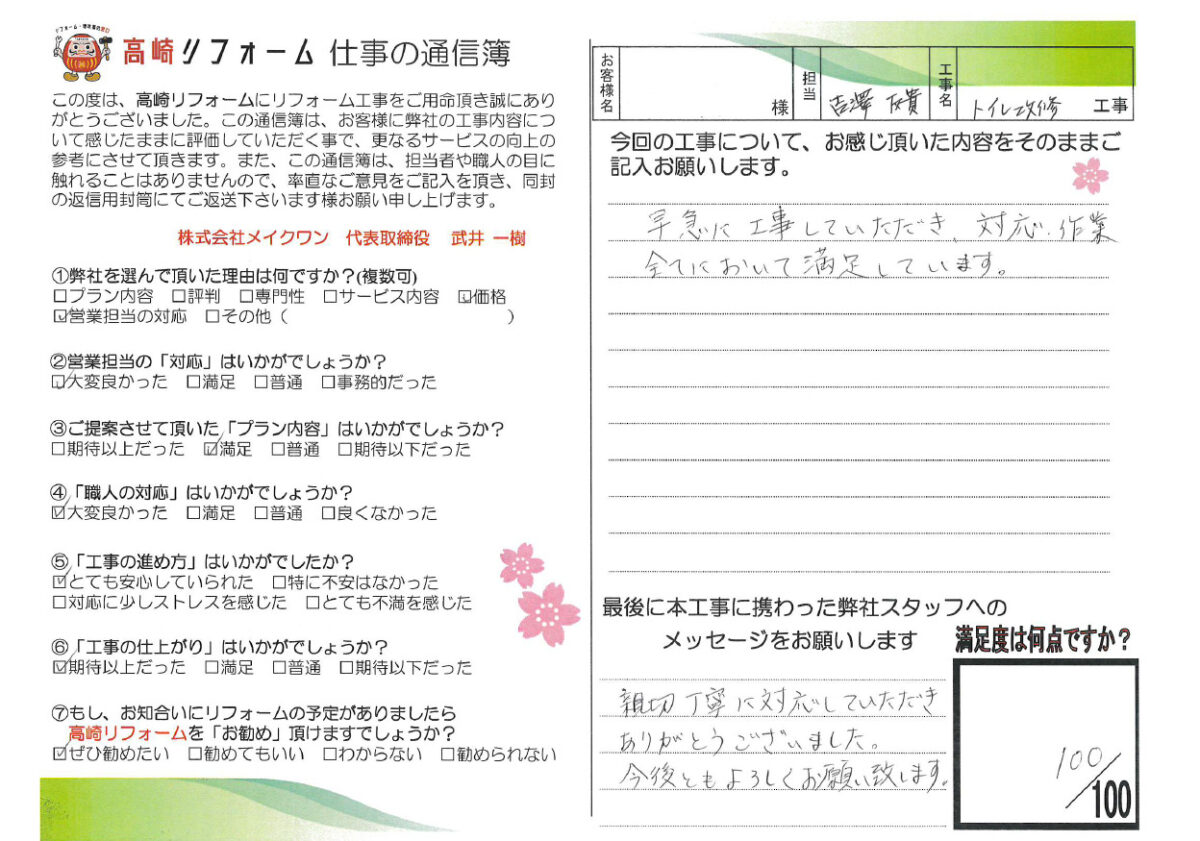 リフォーム・増改築の窓口
高崎リフォーム 仕事の通信簿
この度は、高崎リフォームにリフォーム工事をご用命頂き誠にあり
がとうございました。この通信簿は、お客様に弊社の工事内容につ
いて感じたままに評価していただく事で、更なるサービスの向上の
参考にさせて頂きます。また、この通信簿は、担当者や職人の目に
触れることはありませんので、率直なご意見をご記入を頂き、同封
の返信用封筒にてご返送下さいます様お願い申し上げます。
株式会社メイクワン 代表取締役 武井 一樹
①弊社を選んで頂いた理由は何ですか？(複数可)
□プラン内容 □評判 □専門性 □サービス内容 ☑価格
☑営業担当の対応 □その他（ ）
②営業担当の「対応」はいかがでしょうか？
☑大変良かった □満足 □普通 □事務的だった
③ご提案させて頂いた「プラン内容」はいかがでしょうか？
□期待以上だった ☑満足 □普通 □期待以下だった
④「職人の対応」はいかがでしょうか？
☑大変良かった □満足 □普通 □良くなかった
⑤「工事の進め方」はいかがでしたか？
☑とても安心していられた □特に不安はなかった
□対応に少しストレスを感じた □とても不満を感じた
⑥「工事の仕上がり」はいかがでしょうか？
☑期待以上だった □満足 □普通 □期待以下だった
⑦もし、お知合いにリフォームの予定がありましたら
高崎リフォームを「お勧め」頂けますでしょうか？
☑ぜひ勧めたい □勧めてもいい □わからない □勧められない
お客様名 様 担当 吉澤 友貴 工事名 トイレ改修 工事
今回の工事について、お感じ頂いた内容をそのままご
記入お願いします。
早急に工事していただき、対応・作業
全てにおいて満足しています。
最後に本工事に携わった弊社スタッフへの
メッセージをお願いします
親切丁寧に対応していただき
ありがとうございました。
今後ともよろしくお願い致します。
満足度は何点ですか？
100/100